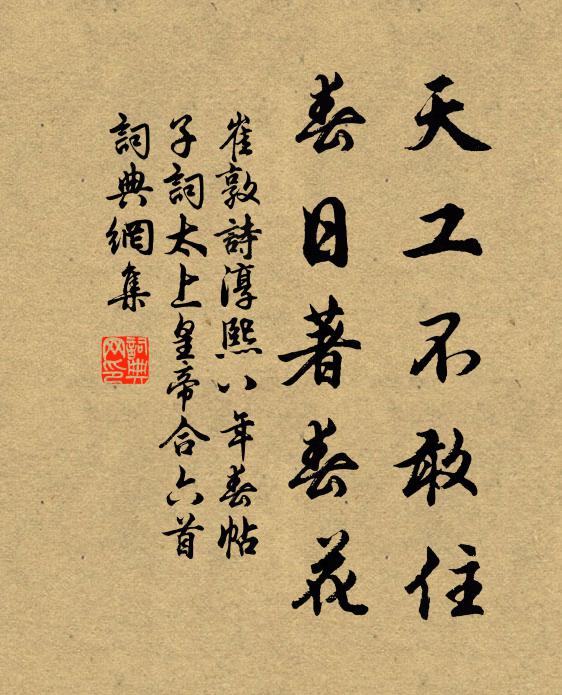 天工不敢住
春日著春花
崔敦詩淳熙八年春帖
子詞太上皇帝合六首
詞典網集
詞典
网印